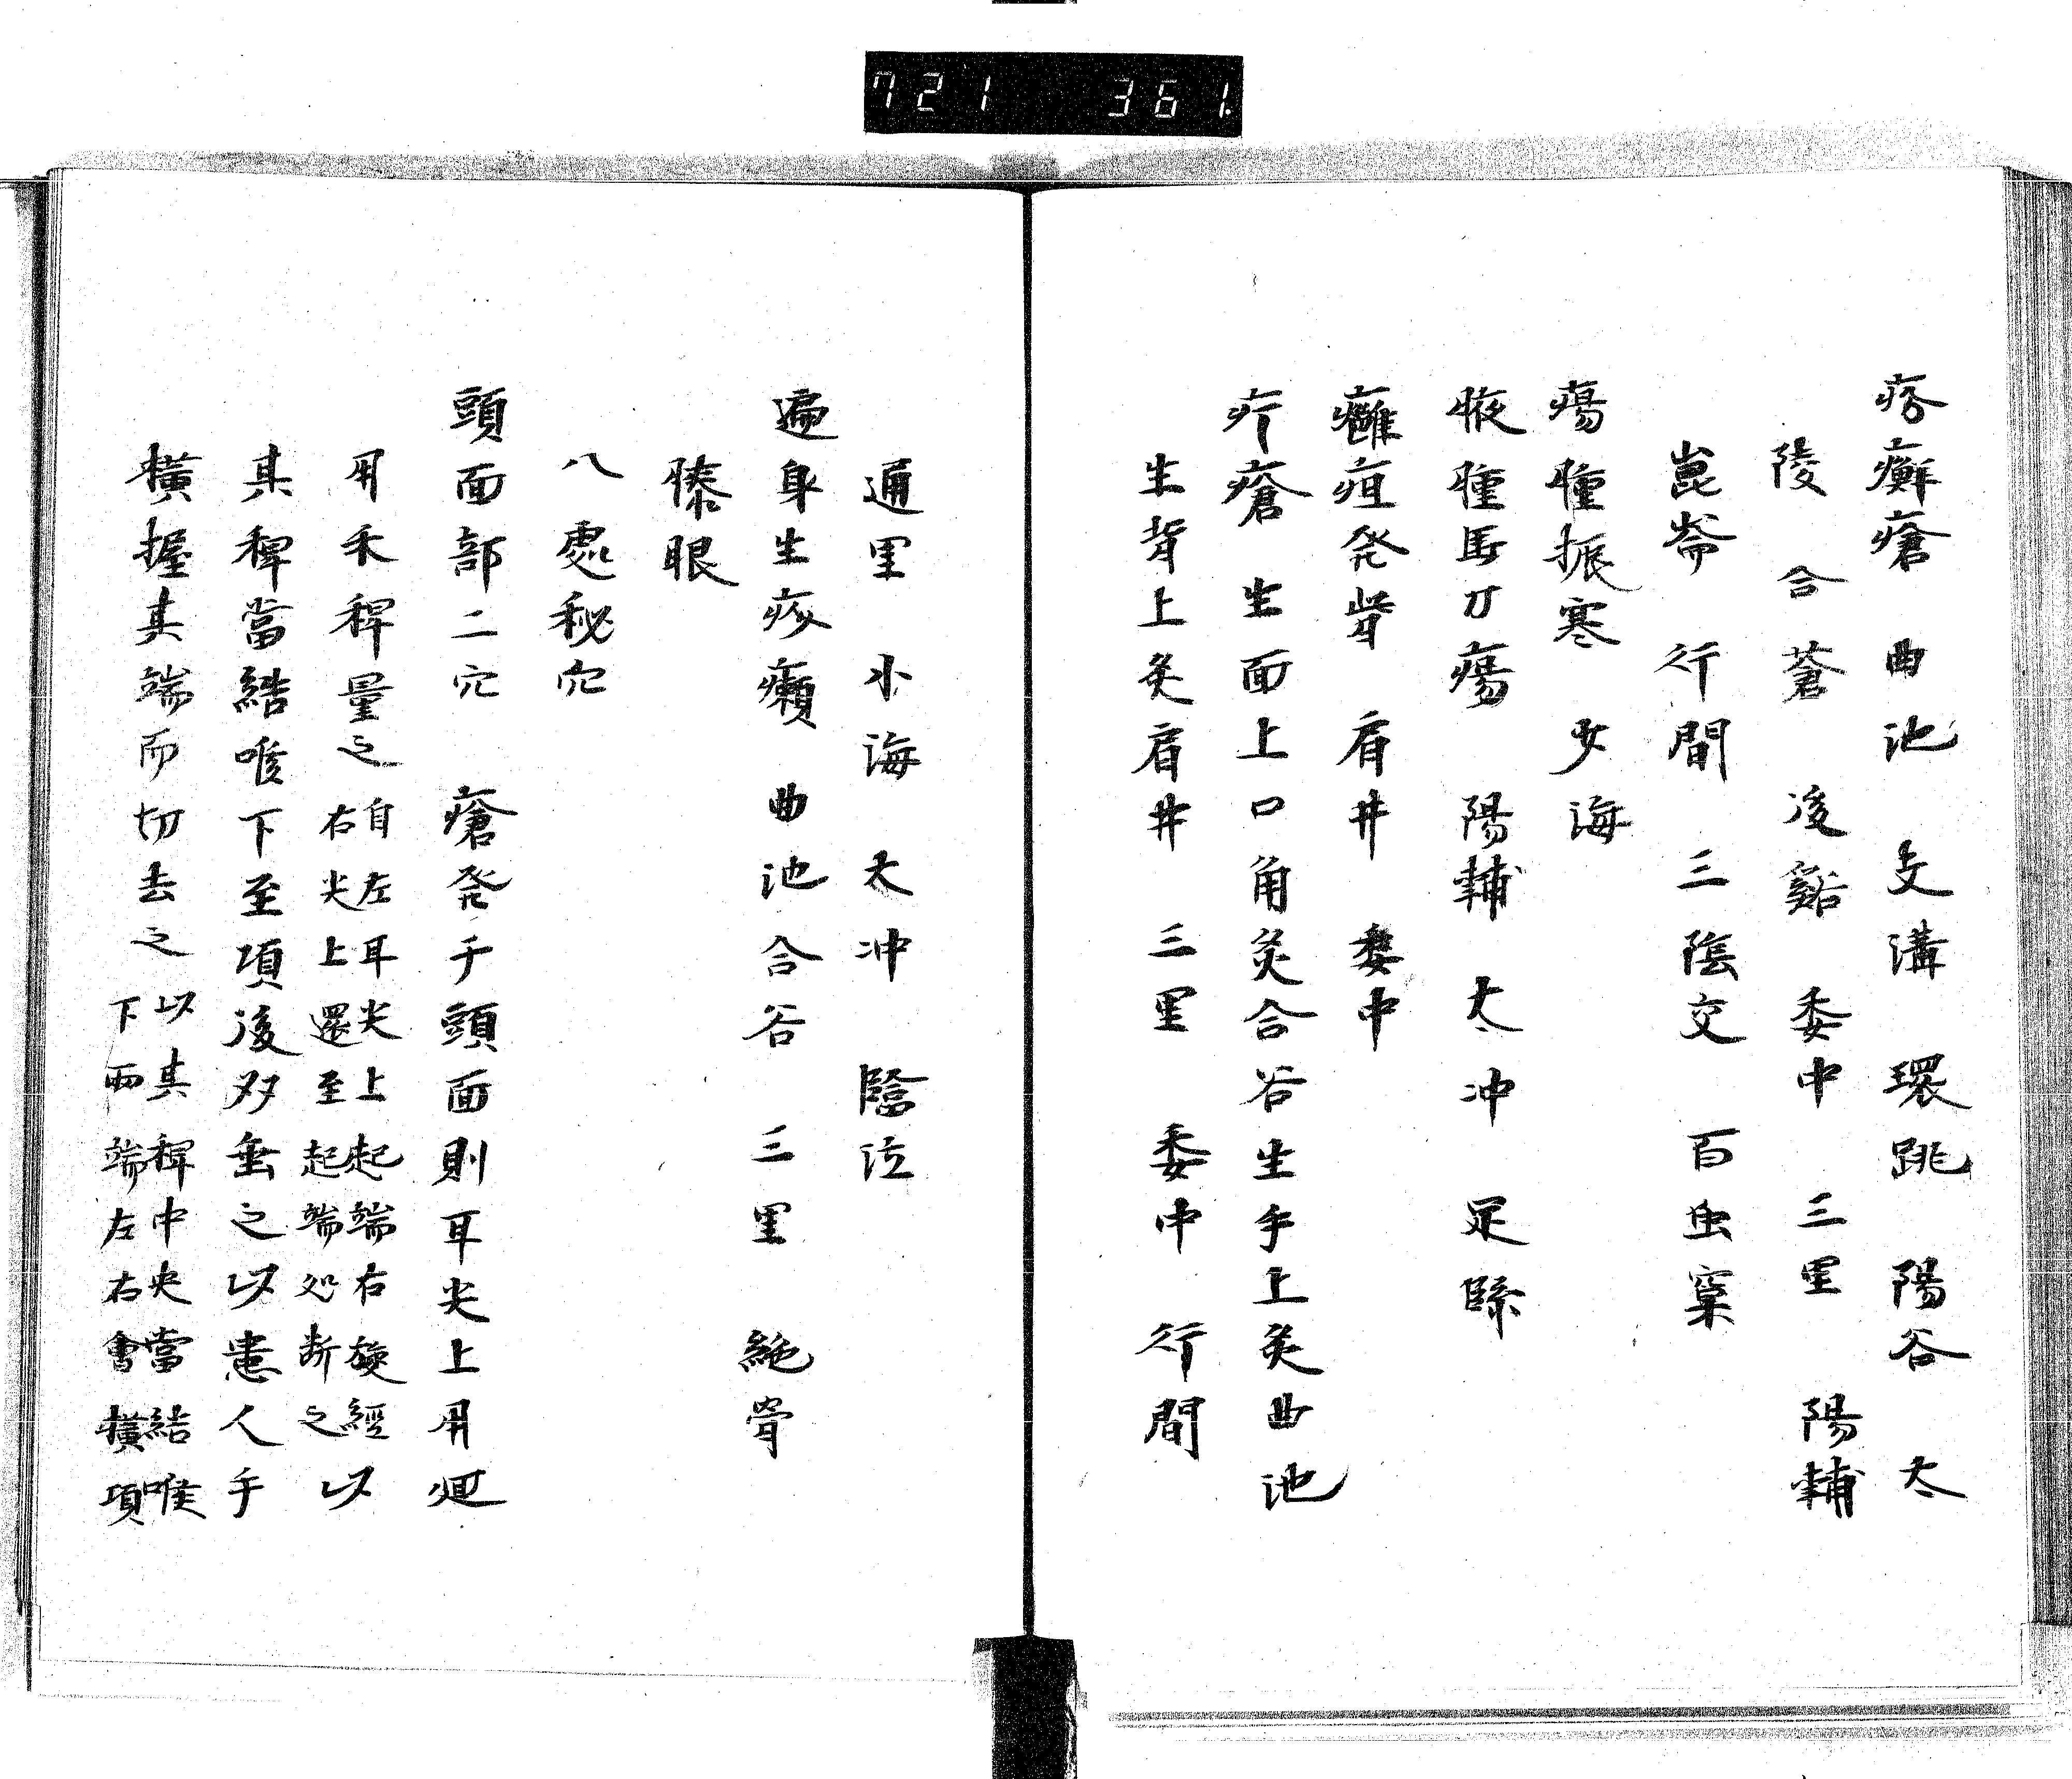 721 361
疥癬瘡 曲池 支溝 環跳 陽谷 大
陵 合蒼 後谿 委中 三里 陽輔
崑崙 行間 三陰交 百虫窠
瘍腫振寒 少海
腋腫馬刀瘍 陽輔 太冲 足臨
癰疽発背 肩井 委中
疔瘡 生面上口角灸合谷生手上灸曲池
生背上灸肩井 三里 委中 行間
通里 小海 太冲 臨泣
遍身生疥癩 曲池 合谷 三里 絶骨
膝眼
八處秘穴
頭面部二穴 瘡発于頭面則耳尖上用
用禾稈量之 自左耳尖上起端右旋經
右尖上還至起端処断之 以
其稈當結喉下至項後双垂之以患人手
横握其端而切去之 以其稈中央當結喉
下両端左右會横項